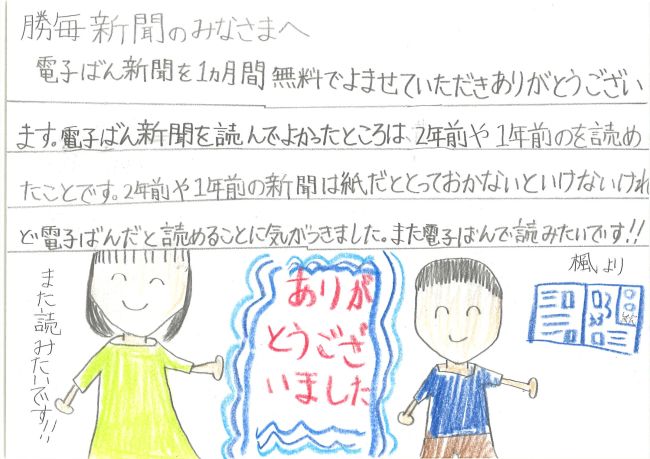 勝毎新聞のみなさまへ
電子ばん新聞を1ヵ月間無料でよませていただきありがとうござい
ます。電子ばん新聞を読んでよかったところは、2年前や1年前のを読め
たことです。2年前や1年前の新聞は紙だととっておかないといけないけれ
ど電子ばんだと読めることに気がつきました。また電子ばんで読みたいです!!
楓より
また読みたいです!!
ありが
とうござ
いました